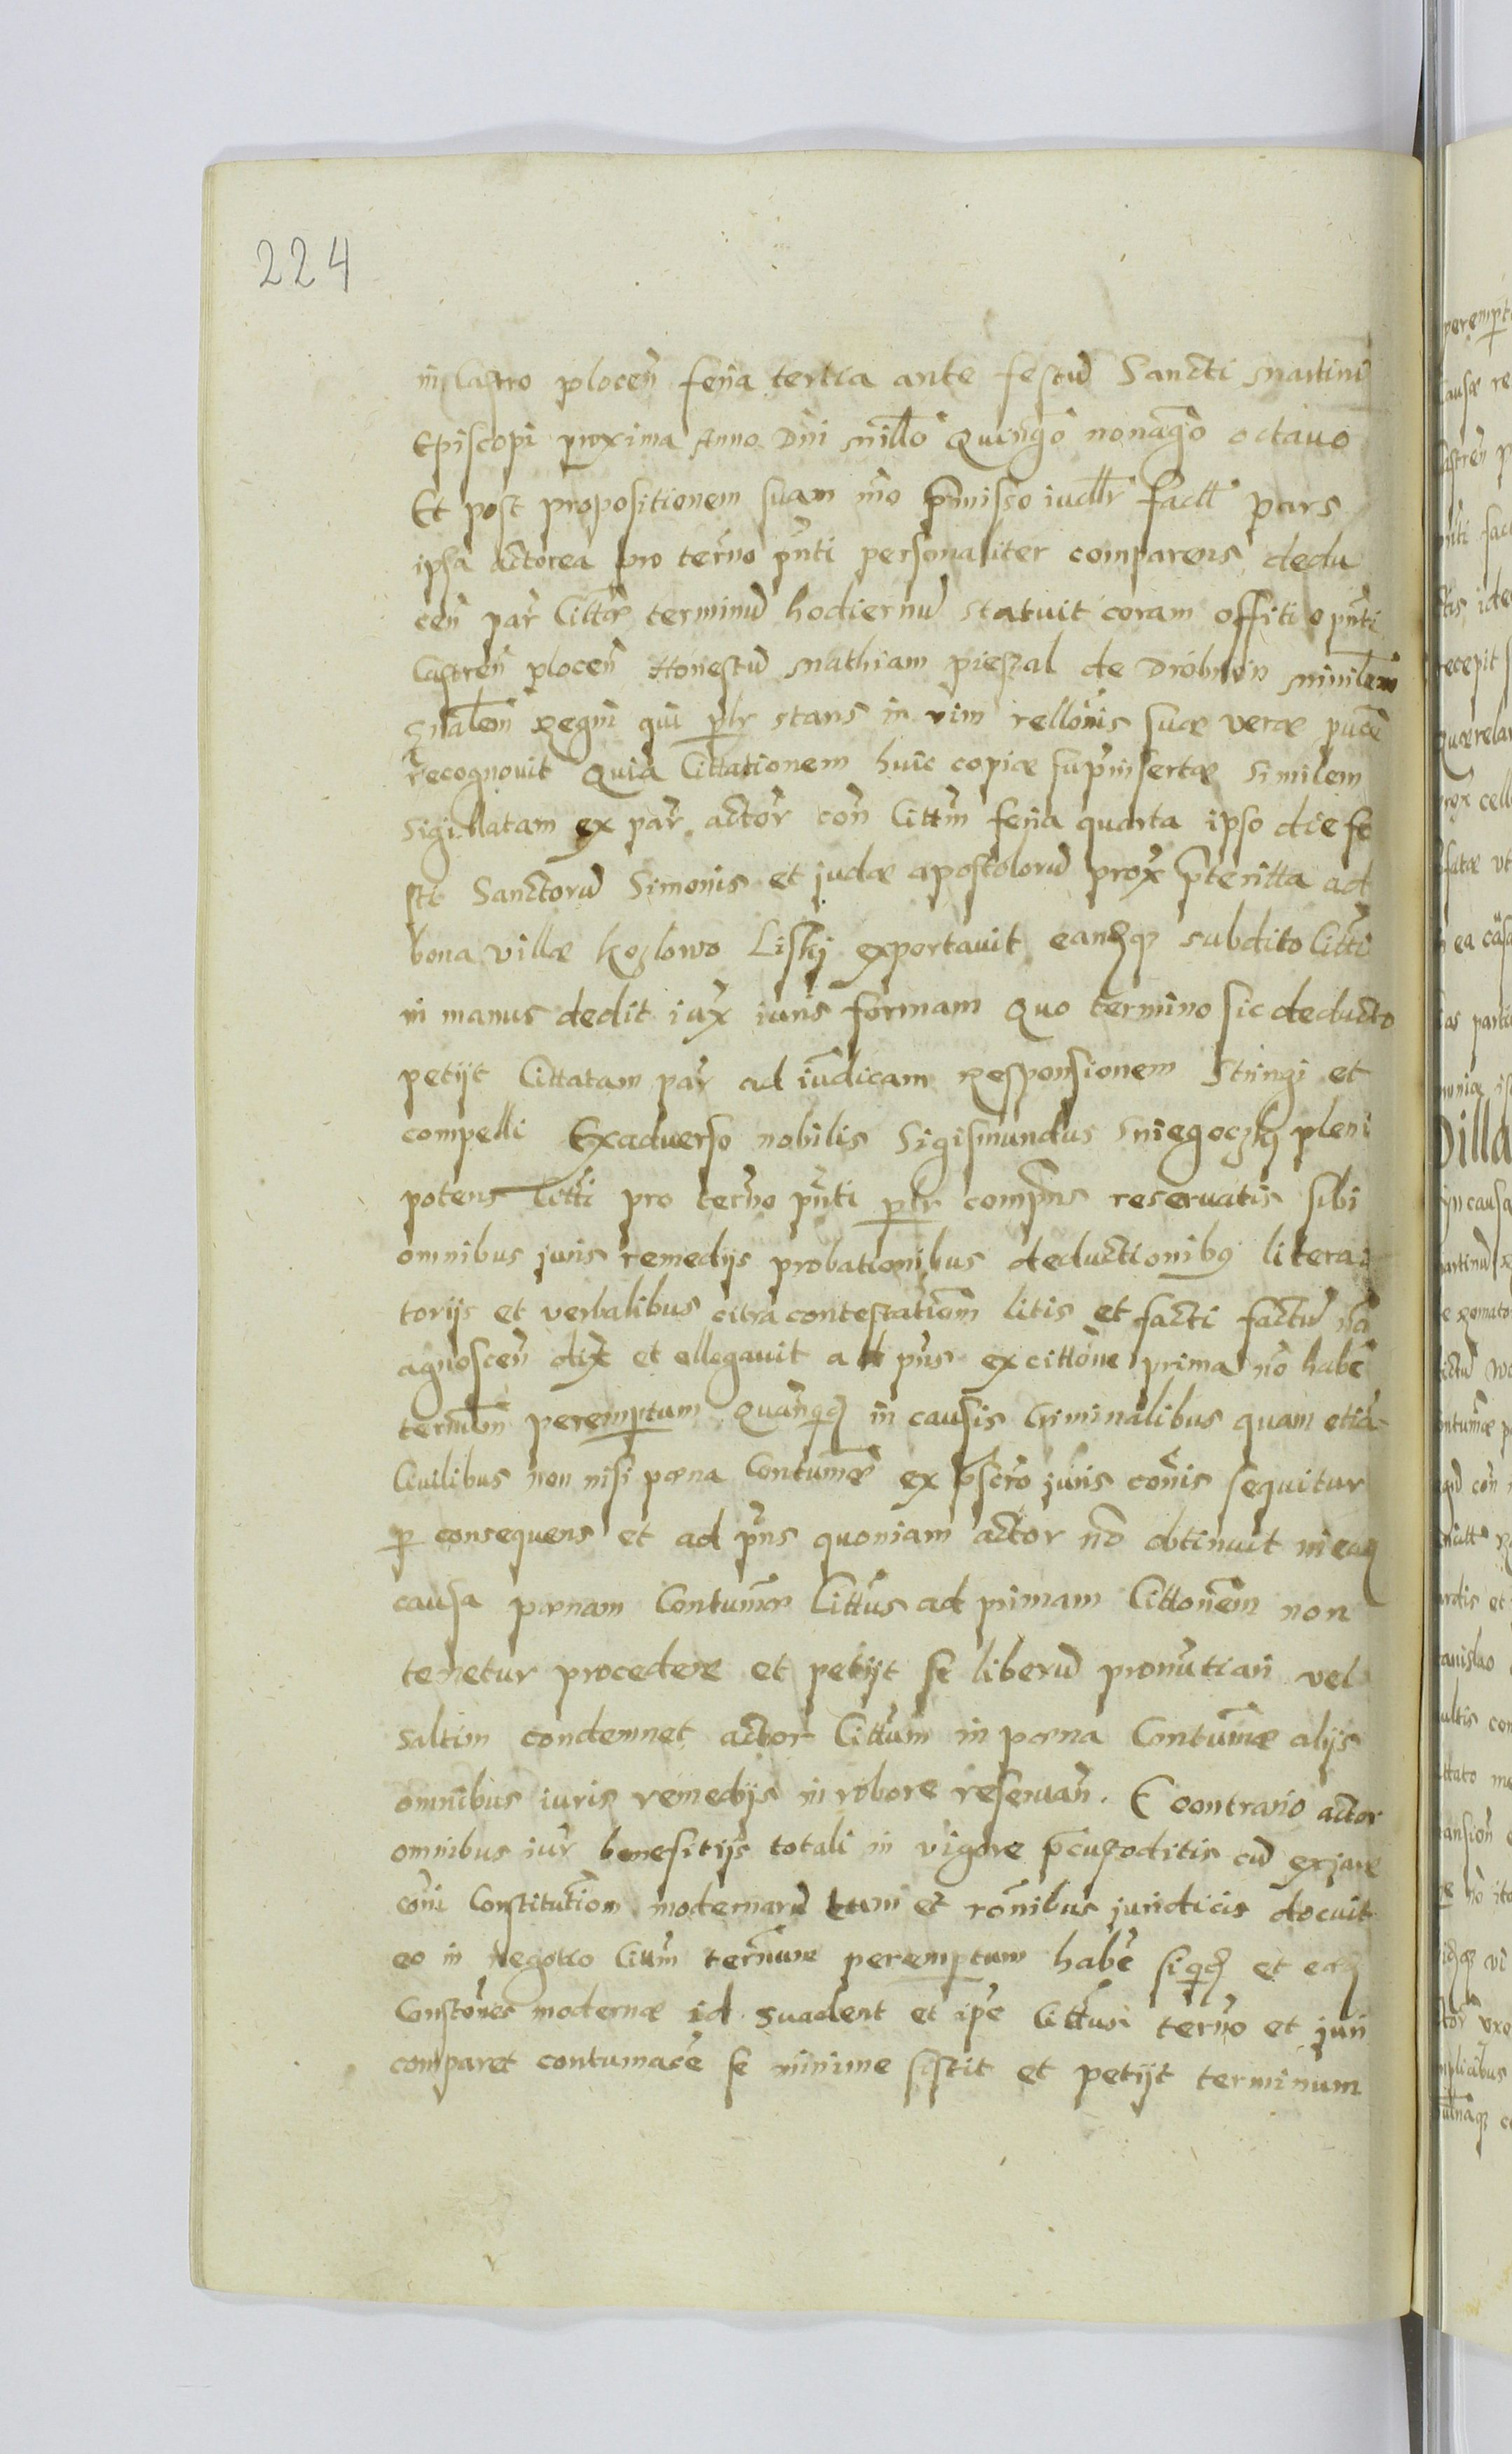 224
in Castro plocen̄ feria tertia ante festū Sancti Martini
Episcopi proxima Anno Dni Millō Quingō nonagō octauo
Et post propositionem suam mō p̄misso iudllr̄ factt̄ pars
ipsa actorea pro term̄o pn̄ti personaliter comparens dedu
cen̄ par̄ Citt̄ae terminū hodiernū statuit coram offitio pn̄ti
Castren̄ plocen̄ Honestū Mathiam pieszal de Drobnin Ministēm
Gn̄alem Regni qui plr̄ stans in vim rellōnis suae verae pucē
recognouit Quia Cittationem huic copiae sup̄insertae Similem
Sigillatam ex par̄ actor̄ con̄ Citt̄m feria quarta ipso die fe
sti Sanctorū Simonis et judae apostolorū prox̄ p̄teritta ad
bona villae Kozlowo Liskj exportauit eandq3 subdito Citt̄i
in manus dedit iux̄ iuris formam Quo termino sic deducto
petijt Cittatam par̄ ad iūdicam Responsionem Stringi et
compelli Exaduerso nobilis Sigismundus Sniegoczkj pleni
potens Citt̄i pro term̄o pn̄ti plr̄ comp̄ns reseruatis sibi
omnibus juris remedijs probationibus deductionibq literat
torijs et verbalibus citra contestatiōem litis et facti factū nō
agnoscen̄ dix̄it et ellegauit ad pn̄s ex cittōne prima nō habē
term̄um peremptum Quanqd in causis Criminalibus quam etiā
Ciuilibus non nisi poena Contumae ex p̄scr̄o juris cōnis sequitur
p consequens et ad pn̄s quoniam actor nō obtinuit in ead
causa poenam Contumāe Citt̄us ad primam Cittōnem non
tenetur procedere et petijt se liberū pronūtiari vel
saltim condemnet actor Citt̄um in poena Contumāe alijs
omnibus iuris remedijs in robore reseruan̄. E contrario actor
omnibus iur̄ benefitijs totali in vigore p̄custoditis cū ex jure
cōni Constitutiōm modernarū tum et rōnibus juridicis docuit
eo in negotio Citt̄m term̄um peremptum habē siqd et eaed
Constōnes modernae id suadent et ipse Citt̄us term̄o et juri
comparet contumacē se minime sistit et petijt terminum